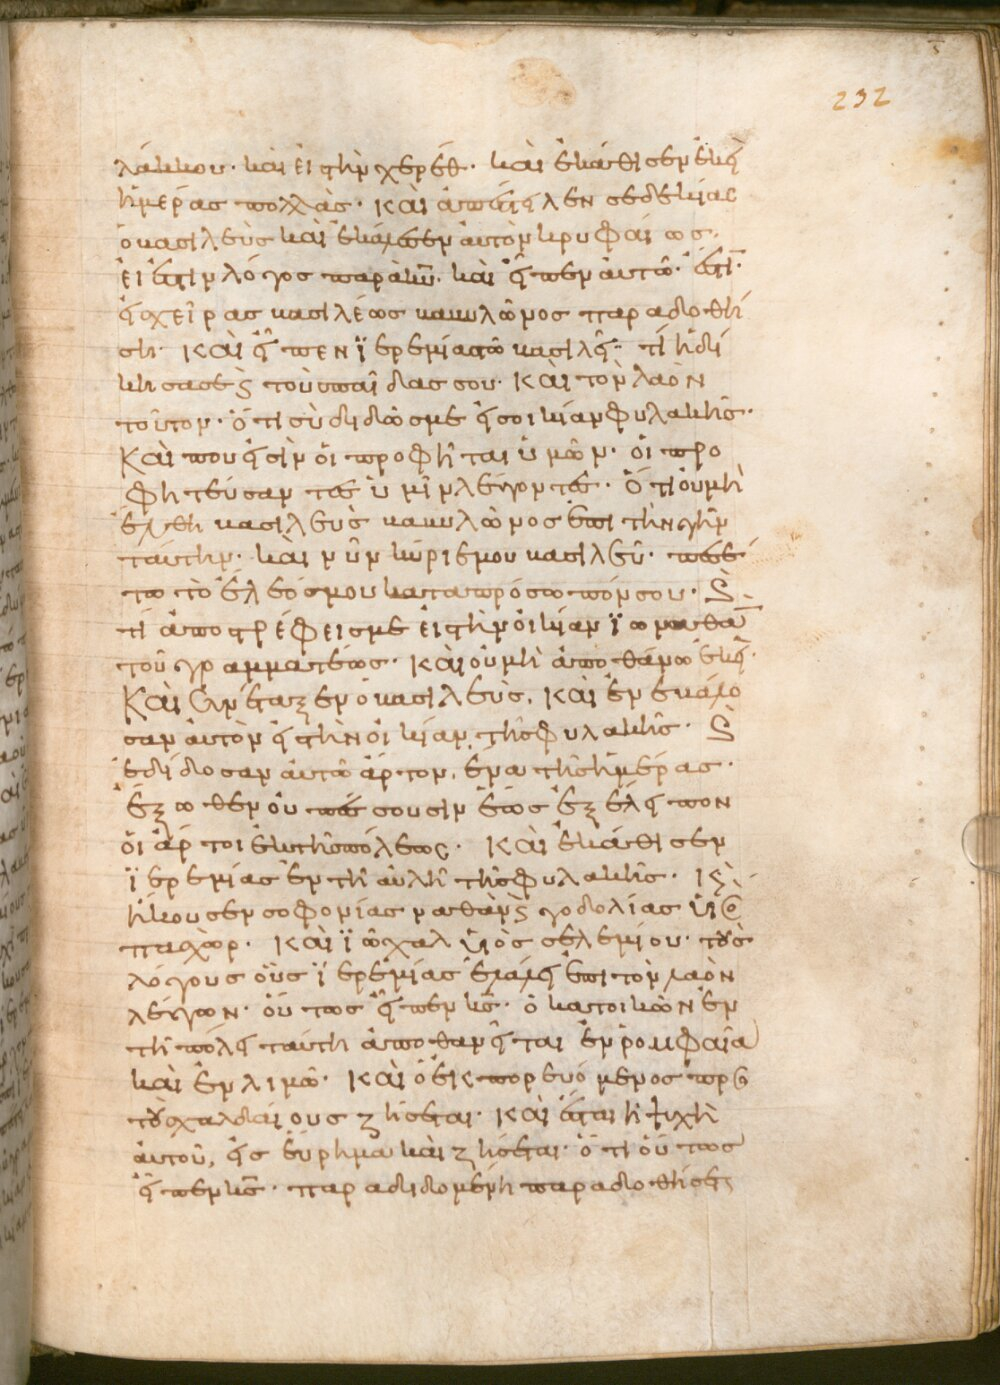 232
λάκκου· καὶ εἰς τὴν χερέθ· καὶ ἐκάθισεν ἐκεῖ
ἡμέρας πολλάς· καὶ ἀπέστειλεν σεδεκίας
ὁ βασιλεὺς καὶ ἐκάλεσεν αὐτὸν κρυφαίως·
εἰ ἔστιν λόγος παρὰ κ̅υ̅· καὶ εἶπεν αὐτῶ· ἔστι̅·
εἰς χεῖρας βασιλέως βαβυλῶνος παραδοθή
ση· καὶ εἶπεν ϊερεμίας τῶ βασιλεῖ· τί ἠδί
κησά σε ϗ τοὺς παῖδας σου· καὶ τὸν λαὸν
τοῦτον· ὅτι σὺ δίδως με εἰς οικίαν φυλακῆς·
Καὶ που εἰσὶν οἱ προφῆται ὑμῶν· οἱ προ
φητεύσαντες ὑμῖν λέγοντες· ὅτι οὐ μὴ
ἔλθη βασιλεὺς βαβυλῶνος ἐπι τὴν γῆν
ταύτην· καὶ νῦν κύριέ μου βασιλεῦ· πεσέ
τω τὸ ἔλεός μου κατα πρόσωπόν σου· ϗ
τί ἀποστρέφεις με εἰς τὴν οἰκίαν ϊωναθα̅
τοῦ γραμματέως· καὶ οὐ μὴ ἀποθάνω ἐκεῖ·
Καὶ συνέταξεν ὁ βασιλεὺς, καὶ ἐνεβάλο
σαν αὐτὸν εἰς τὴν οἰκίαν τῆς φυλακῆς· ϗ
εδίδοσαν αὐτῶ ἄρτον, ἕνα τῆς ἡμέρας·
ἔξωθεν οὗ πέσσουσιν ἕως ἐξέλειπον
οἱ ἄρτοι ἐκ τῆς πόλεως· καὶ ἐκάθισεν
ϊερεμίας ἐν τῆ αὐλῆ τῆς φυλακῆς· ϗ
ἤκουσεν σοφονίας ναθὰν ϗ γοδολίας υἱὸς
πασχὼρ· καὶ ϊωχαλ υἱὸς σελεμίου· τοὺς
λόγους οὓς ϊερεμίας ἐλάλει ἐπι τὸν λαὸν
λέγων· οὕτως εἶπεν κ̅ς̅· ὁ κατοικῶν ἐν
τῆ πόλει ταύτη ἀποθανεῖται ἐν ρομφαία
καὶ ἐν λιμῶ· καὶ ὁ ἐκπορευόμενος πρὸς
τοὺς χαλδαίους ζήσεται· καὶ ἔσται ἡ ψυχὴ
αὐτοῦ, εἰς εὕρημα καὶ ζήσεται· ὅτι οὕτως
εἶπεν κ̅ς̅· παραδιδομένη παραδοθήσεται